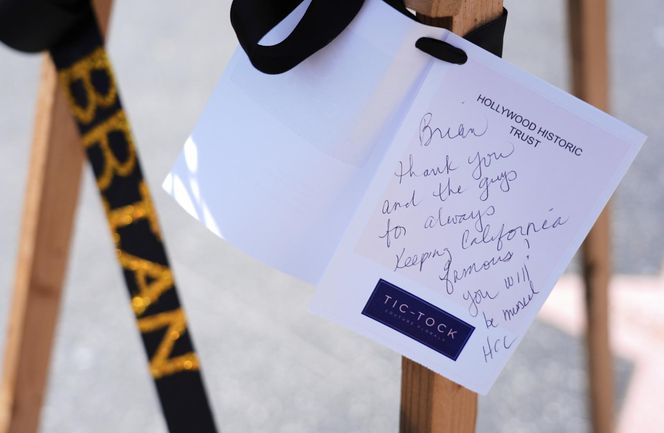 BRIAN
HOLLYWOOD HISTORIC
TRUST
Brian
thank you
and the guys
for always
Keeping California
famous!
you will
be missed
HCC
TIC-TOCK
COUTURE FLORALS